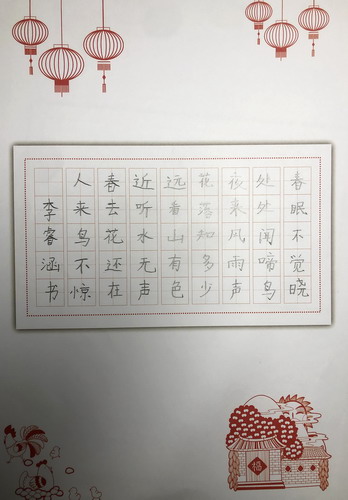 春眠不觉晓
处处闻啼鸟
夜来风雨声
花落知多少
远看山有色
近听水无声
春去花还在
人来鸟不惊
李睿涵书
福